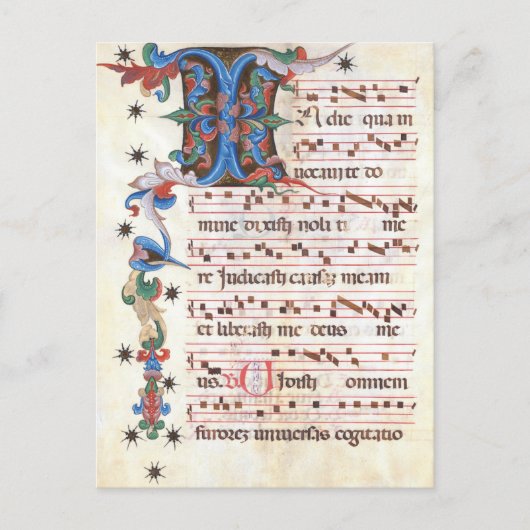 IN die qua in
uocaui te do
mine dixisti noli ti me
re Iudicasti causaz meam
et liberasti me deus me
us. V Vidisti omnem
furorez uniuersas cogitatio